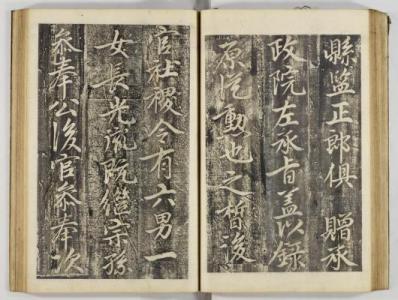 縣監正郎俱 贈承
政院左承旨盖以錄
原從勳也之晳後
官社稷令有六男一
女長光流既繼宗孫
參奉公後官參奉次